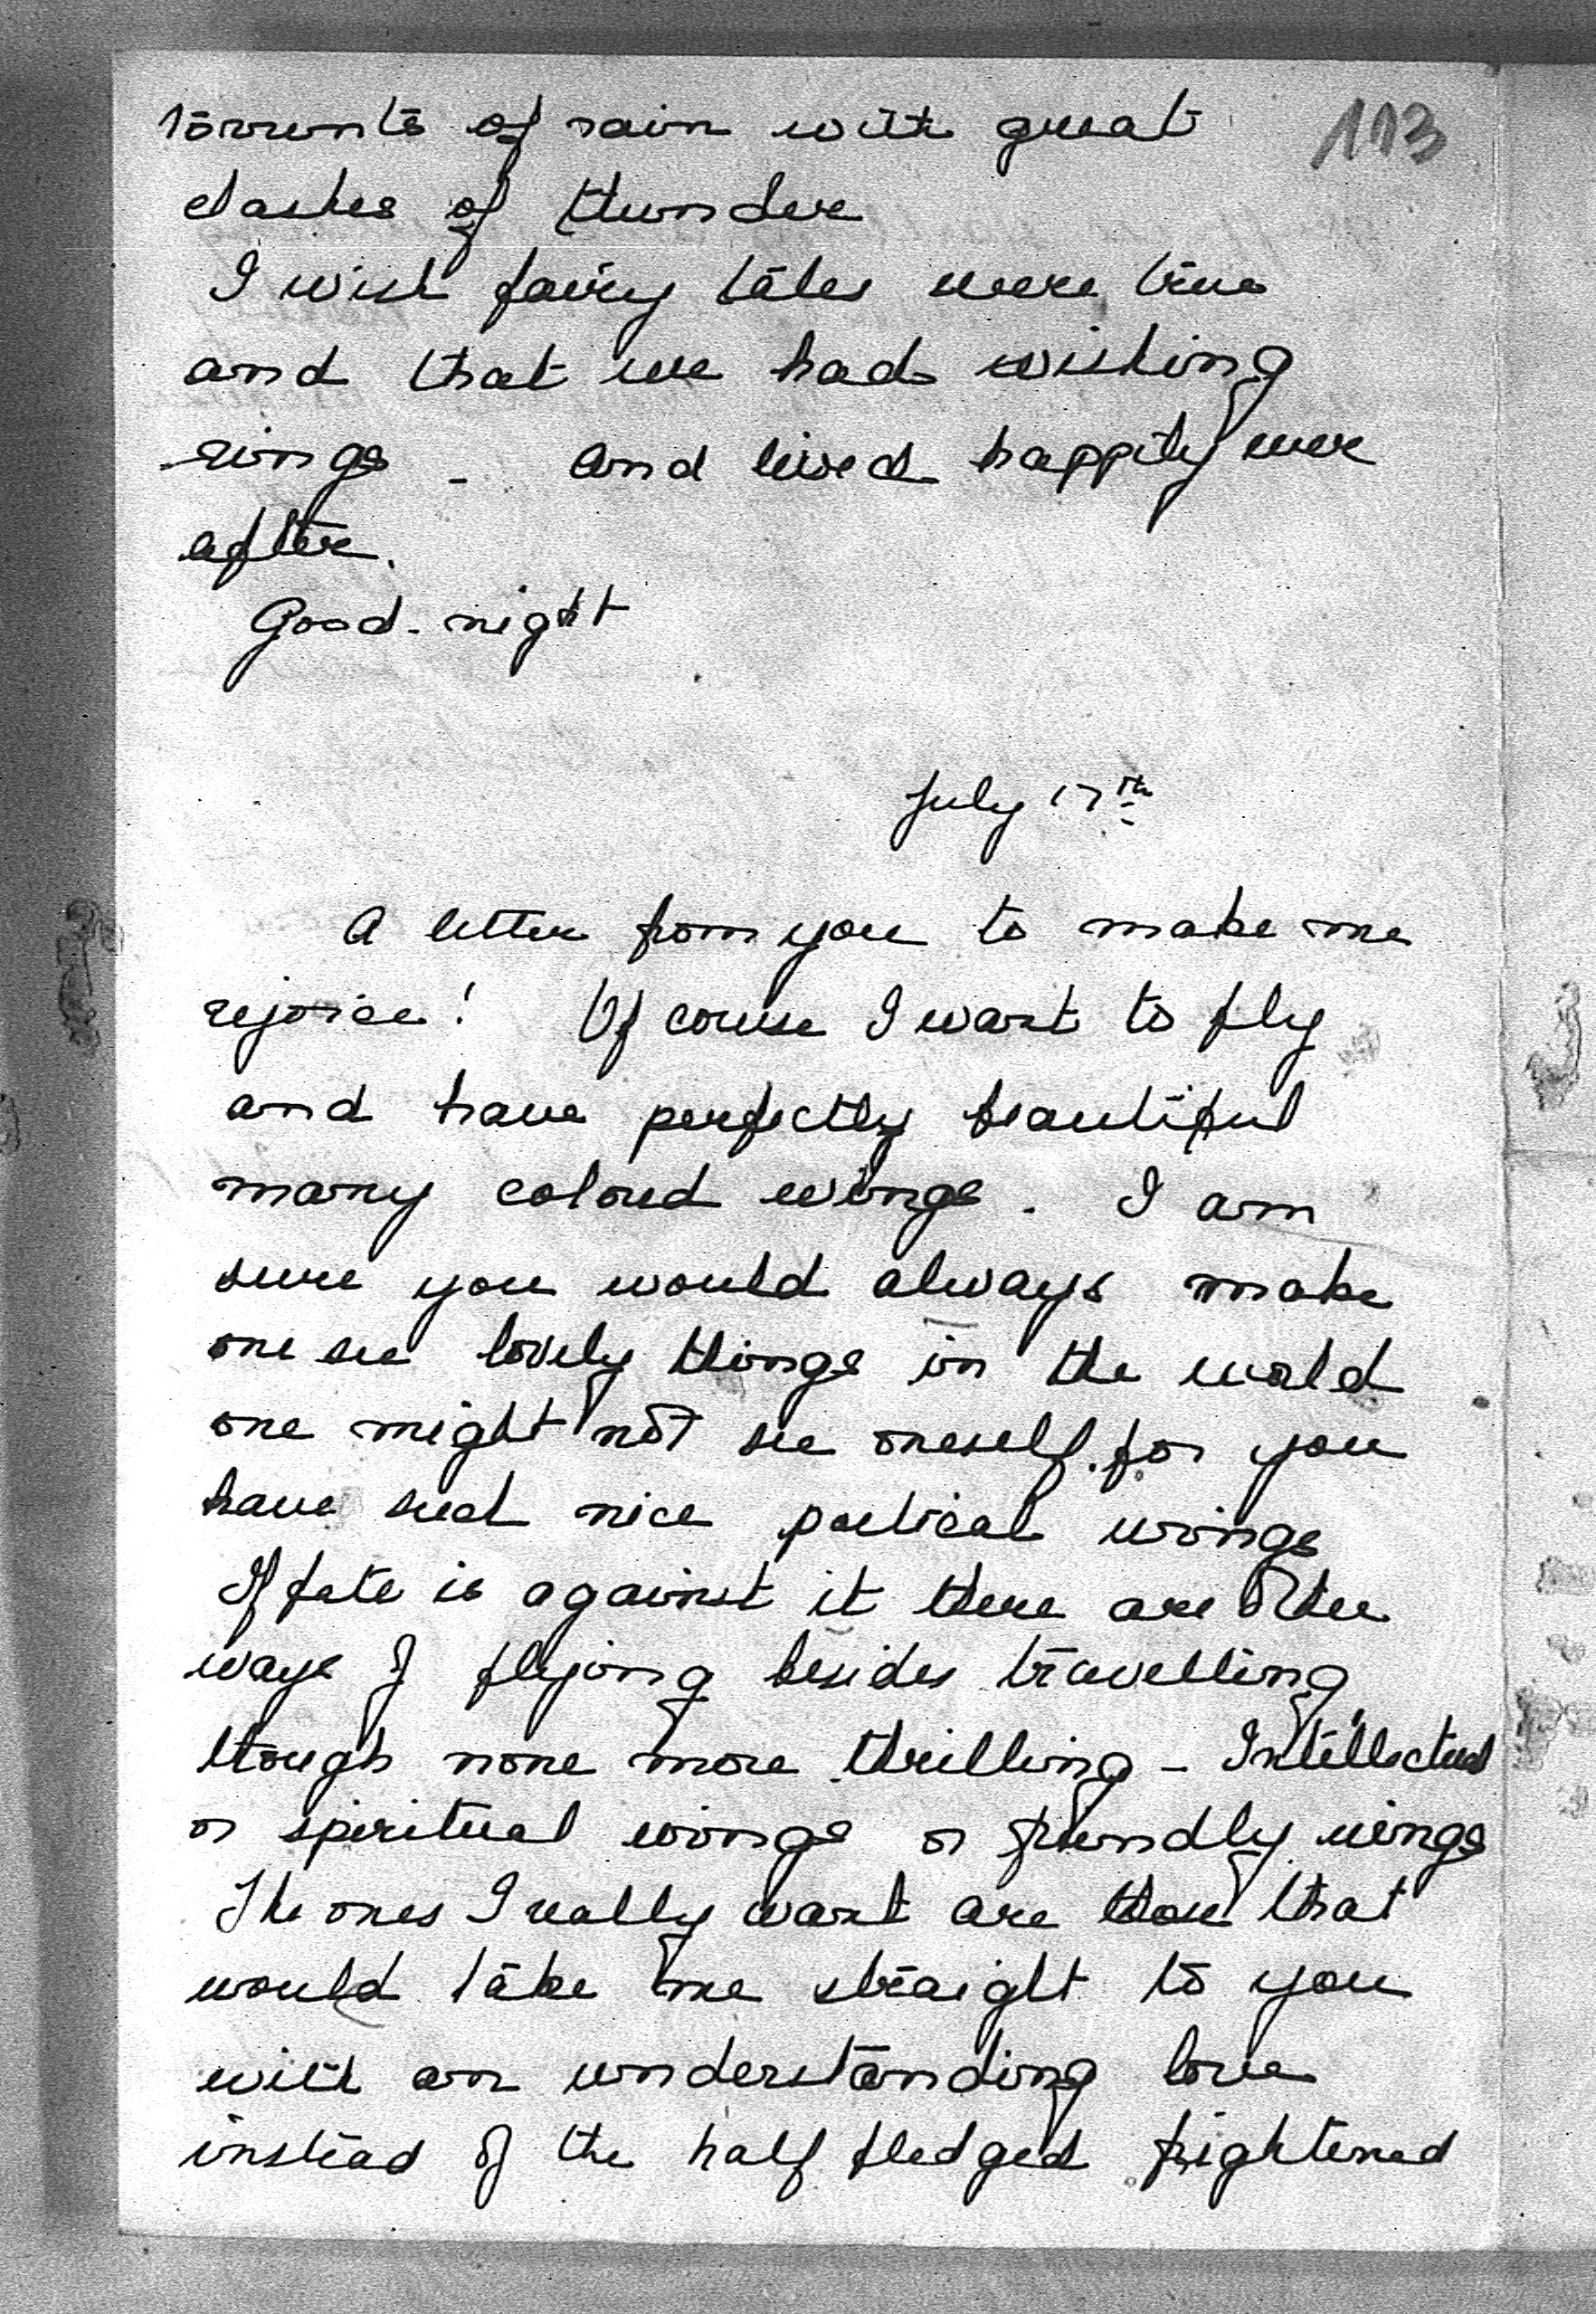 torrents of rain with great 113
clashes of thunder
I wish fairy tales were true
and that we had wishing
rings - and lived happily ever
after.
Good-night
July 17th
A letter from you to make me
rejoice! Of course I want to fly
and have perfectly beautiful
many coloud wings. I am
sure you would always make
one see lovely things in the world
one might not see oneself for you
have such nice poetical wings
If fate is against it there are other
ways of flying besides travelling,
though none more thrilling - Intellectual
or spiritual wings or friendly wings
The ones I really want are those that
would take me straight to you
with an understanding love
instead of the half fledged frightened